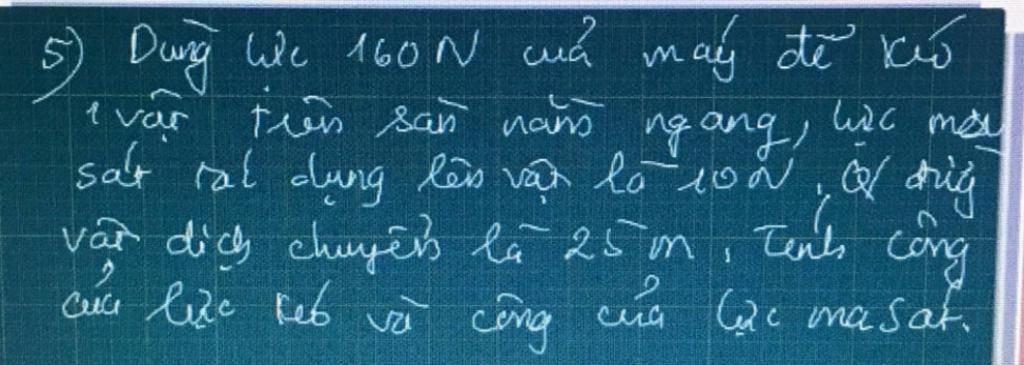 5) Dùng lực 160N của máy để kéo
1 vật trên sàn nằm ngang, lực ma
sát tác dụng lên vật là 10N, Q/ đường
vật dịch chuyển là 25m, Tính công
của lực kéo và công của lực ma sát.